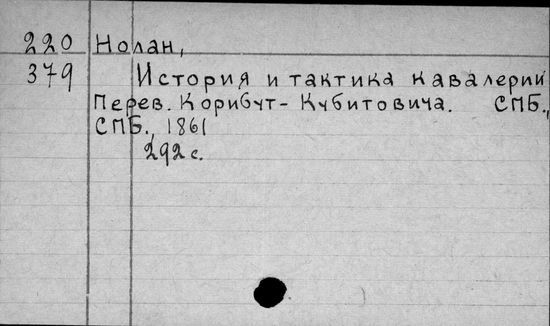 220 Нолан,
379 История и тактика кавалерии
Перев. Корибут-Кубитовича. СПБ.,
СПБ., 1861
292 с.